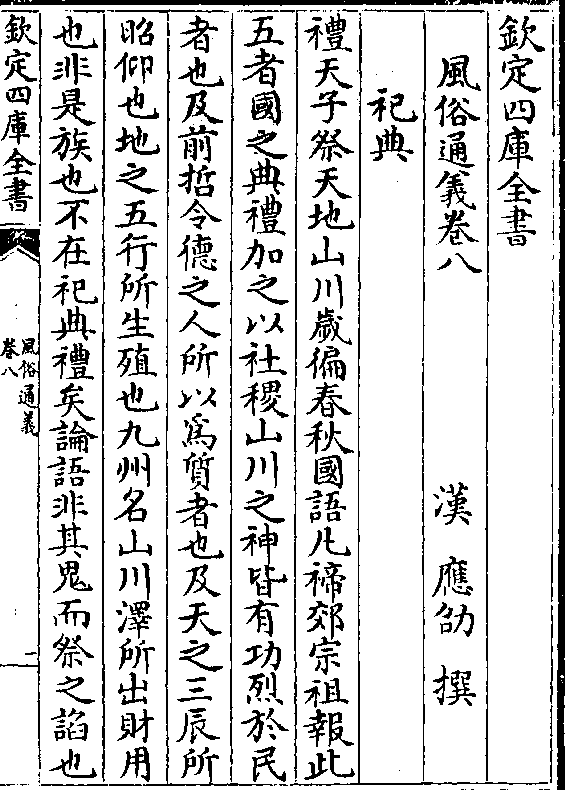 欽定四庫全書
風俗通義卷八　漢　應劭　撰
祀典
禮天子祭天地山川歲徧春秋國語凡禘郊宗祖報此
五者國之典禮加之以社稷山川之神皆有功烈於民
者也及前哲令德之人所以爲質者也及天之三辰所
昭仰也地之五行所生殖也九州名山川澤所出財用
也非是族也不在祀典禮矣論語非其鬼而祭之諂也
欽定四庫全書
風俗通義
卷八
二